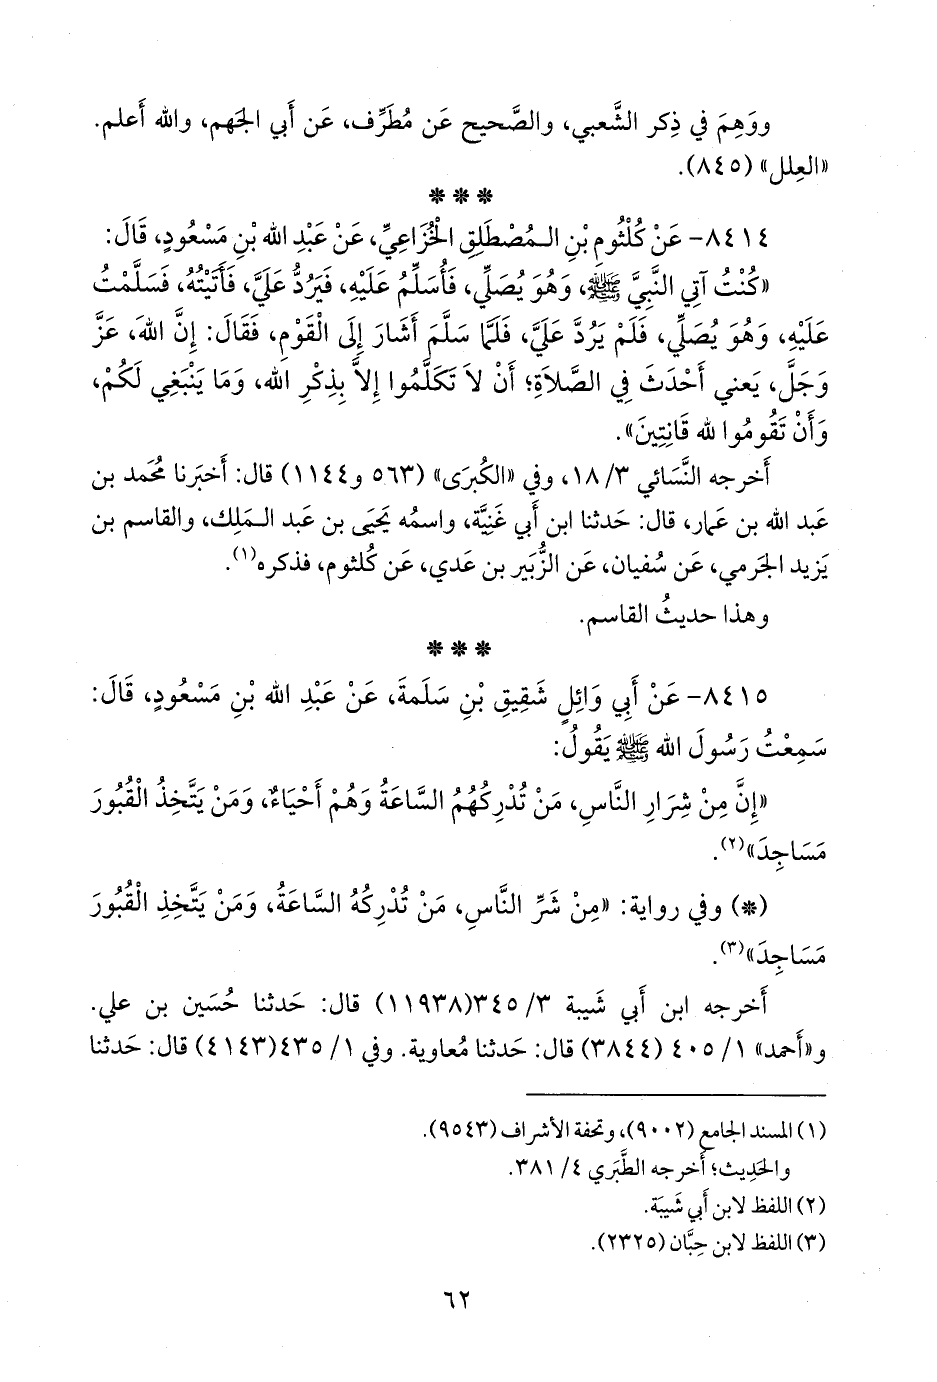 ووَهِمَ في ذِكر الشَّعبي، والصَّحيح عَن مُطَرِّف، عَن أَبي الجَهم، والله أَعلم.
«العِلل» (٨٤٥).
* * *
٨٤١٤- عَنْ كُلْثُومِ بْنِ الـمُصْطَلِقِ الْخُزَاعِيِّ، عَنْ عَبْدِ الله بْنِ مَسْعُودٍ، قَالَ:
«كُنْتُ آتِي النَّبِيَّ ﷺ، وَهُوَ يُصَلِّي، فَأُسَلِّمُ عَلَيْهِ، فَيَرُدُّ عَلَيَّ، فَأَتَيْتُهُ، فَسَلَّمْتُ
عَلَيْهِ، وَهُوَ يُصَلِّي، فَلَمْ يَرُدَّ عَلَيَّ، فَلَمَّا سَلَّمَ أَشَارَ إِلَى الْقَوْمِ، فَقَالَ: إِنَّ اللهَ، عَزَّ
وَجَلَّ، يَعني أَحْدَثَ فِي الصَّلاَةِ؛ أَنْ لاَ تَكَلَّمُوا إِلاَّ بِذِكْرِ الله، وَمَا يَنْبَغِي لَكُمْ،
وَأَنْ تَقُومُوا لله قَانِتِينَ».
أَخرجه النَّسَائي ٣/ ١٨، وفي «الكُبرَى» (٥٦٣ و١١٤٤) قال: أَخبَرنا مُحَمد بن
عَبد الله بن عَمار، قال: حَدثنا ابن أَبي غَنِيَّة، واسمُه يَحيَى بن عَبد الـمَلِك، والقاسم بن
يَزيد الجَرمي، عَن سُفيان، عَن الزُّبَير بن عَدي، عَن كُلثوم، فذكره(١).
وهذا حديثُ القاسم.
* * *
٨٤١٥- عَنْ أَبِي وَائِلٍ شَقِيقِ بْنِ سَلَمَةَ، عَنْ عَبْدِ الله بْنِ مَسْعُودٍ، قَالَ:
سَمِعْتُ رَسُولَ الله ﷺ يَقُولُ:
«إِنَّ مِنْ شِرَارِ النَّاسِ، مَنْ تُدْرِكُهُمُ السَّاعَةُ وَهُمْ أَحْيَاءٌ، وَمَنْ يَتَّخِذُ الْقُبُورَ
مَسَاجِدَ»(٢).
(*) وفي رواية: «مِنْ شَرِّ النَّاسِ، مَنْ تُدْرِكُهُ السَّاعَةُ، وَمَنْ يَتَّخِذِ الْقُبُورَ
مَسَاجِدَ»(٣).
أَخرجه ابن أَبي شَيبة ٣/ ٣٤٥(١١٩٣٨) قال: حَدثنا حُسَين بن علي.
و«أَحمد» ١/ ٤٠٥ (٣٨٤٤) قال: حَدثنا مُعاوية. وفي ١/ ٤٣٥(٤١٤٣) قال: حَدثنا
(١) المسند الجامع (٩٠٠٢)، وتحفة الأشراف (٩٥٤٣).
والحَدِيث؛ أخرجه الطَّبَري ٤/ ٣٨١.
(٢) اللفظ لابن أَبي شَيبَة.
(٣) اللفظ لابن حِبَّان (٢٣٢٥).
٦٢